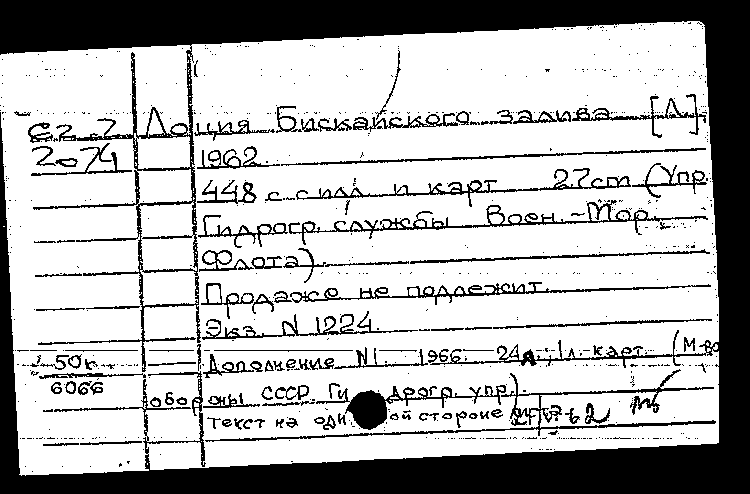 С2.2 Лоция Бискайского залива [Л].
2074 1962.
448 с с илл и карт 27cm (Упр
Гидрогр. службы Воен.-Мор.
Флота).
Продаже не подлежит.
Экз. N 1224.
50к. Дополнение N1. 1966. 24л.; 1л. карт (М-во
6066 обороны СССР Ги дрогр. упр.).
текст на одн ой стороне 62